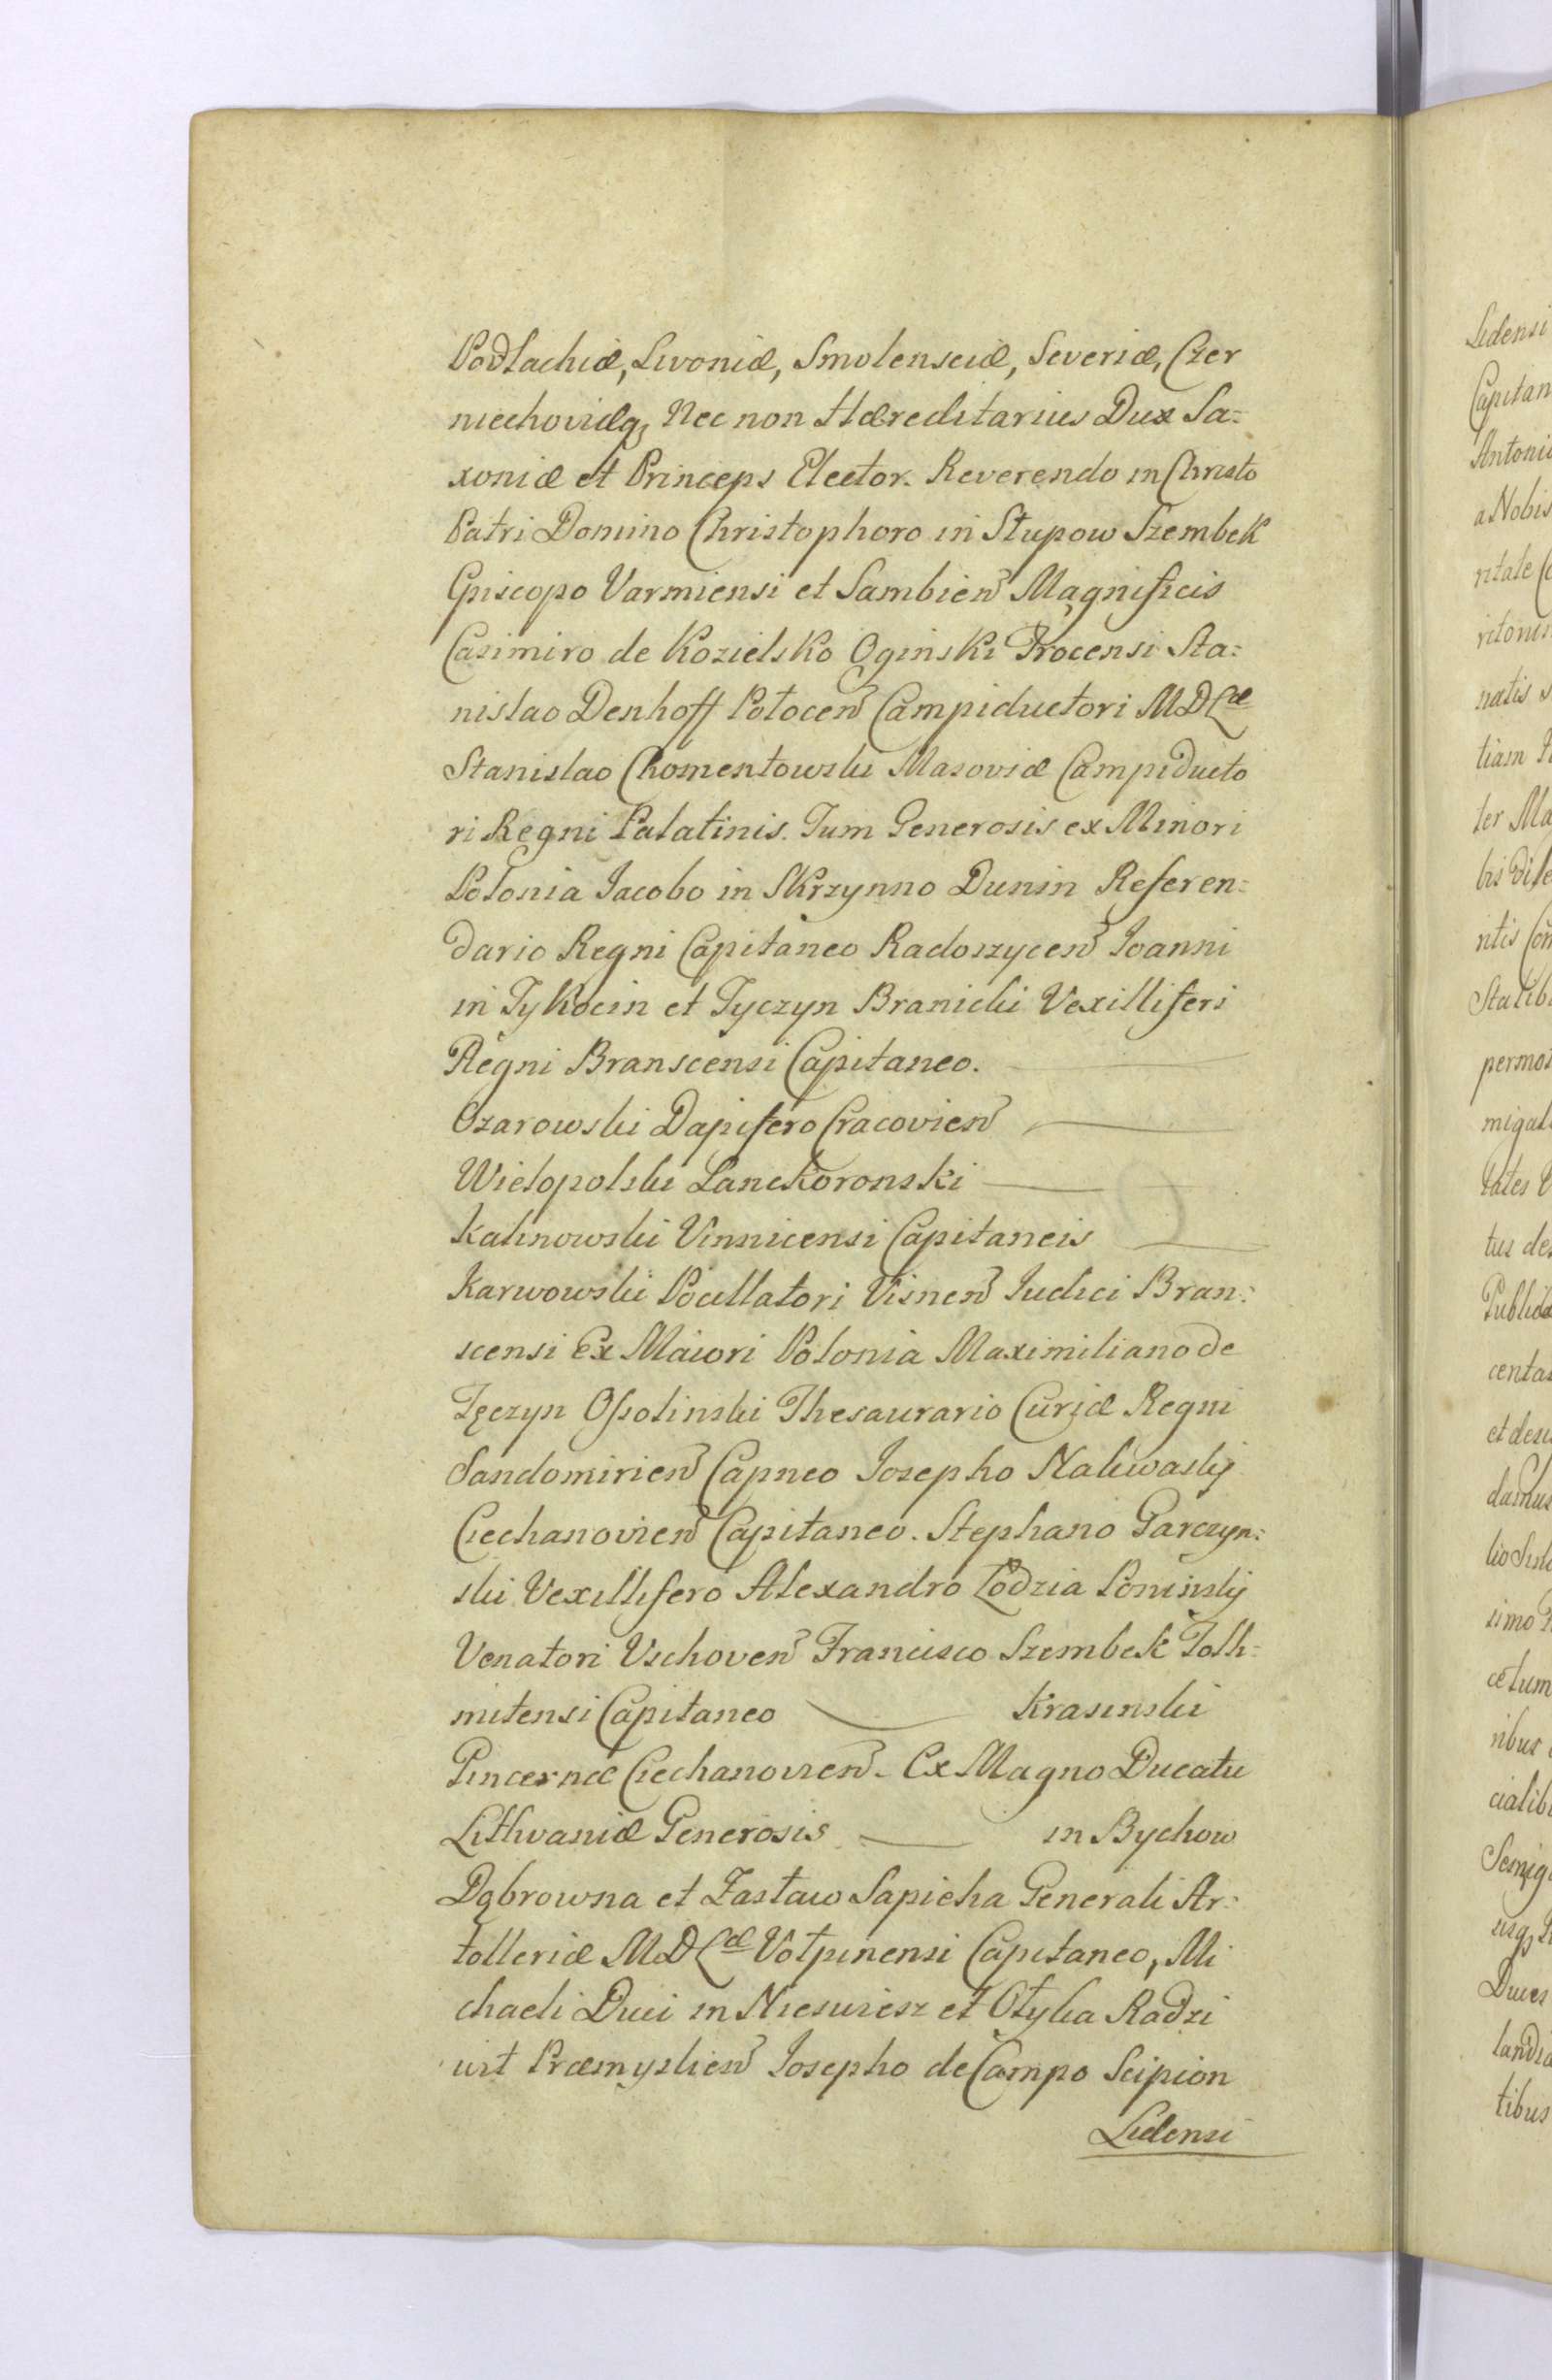 Podlachiæ, Livoniæ, Smolensciæ, Severiæ, Czer
niechoviæq3 Nec non Hæreditarius Dux Sa=
xoniæ et Princeps Elector. Reverendo in Christo
Patri Domino Christophoro in Słupow Szembek
Episcopo Varmiensi et Sambien Magnificis
Casimiro de Kozielsko Oginski Trocensi Sta=
nislao Denhoff Polocen Campiductori MDLæ
Stanislao Chomentowski Masoviæ Campiducto
ri Regni Palatinis. Tum Generosis ex Minori
Polonia Jacobo in Skrzynno Dunin Referen=
dario Regni Capitaneo Radoszycen Joanni
in Tykocin et Tyczyn Branicki Vexilliferi
Regni Branscensi Capitaneo.
Ozarowski Dapifero Cracovien
Wielopolski Lanckoronski
Kalinowski Vinnicensi Capitaneis
Karwowski Pocillatori Visnen Judici Bran=
scensi Ex Maiori Polonia Maximiliano de
Tęczyn Ossolinski Thesaurario Curiæ Regni
Sandomirien Capneo Josepho Nakwaskij
Ciechanovien Capitaneo. Stephano Garczyn=
ski Vexillifero Alexandro Łodzia Poninskij
Venatori Vschoven Francisco Szembek Tolk=
mitensi Capitaneo Krasinski
Pincernæ Ciechanovien. Ex Magno Ducatu
Lithvaniæ Generosis in Bychow
Dąbrowna et Zasław Sapieha Generali Ar=
tolleriæ MDLæ Vołpinensi Capitaneo, Mi
chaeli Duci in Nieswiesz et Ołyka Radzi
wił Præmyslien Josepho de Campo Scipion
Lidensi
Lidensi
Capitan
Antoni
a Nobis
ritale
natis
tiam
ter Ma
bis
ritis
permo
migal
tates
tus de
centa
simo
cetum
ribus
cialib
Duces
landia
tibus